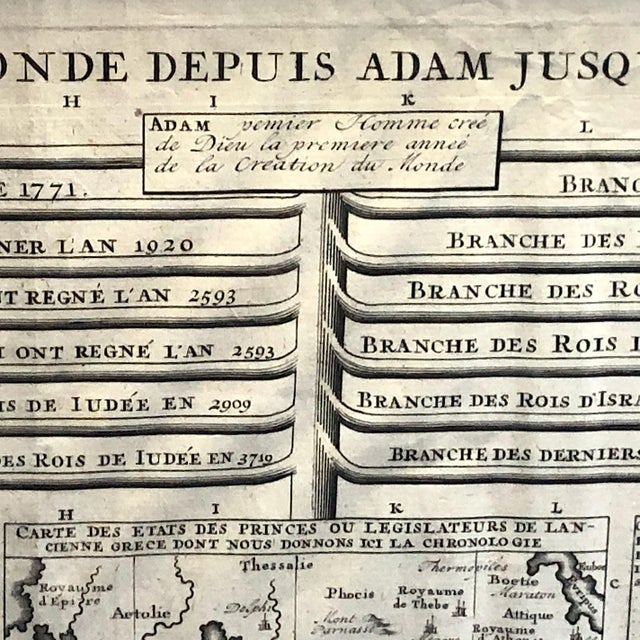 ONDE DEPUIS ADAM JUSQU
H I K L
ADAM premier Homme creé
de Dieu la premiere anneé
de la Creation du Monde
E 1771.
BRANC
NER L'AN 1920
BRANCHE DES
NT REGNÉ L'AN 2593
BRANCHE DES RO
I ONT REGNÉ L'AN 2593
BRANCHE DES ROIS I
IS DE IUDÉE EN 2909
BRANCHE DES ROIS D'ISRA
DES ROIS DE IUDÉE EN 3719
BRANCHE DES DERNIERS
H I K L
CARTE DES ETATS DES PRINCES OU LEGISLATEURS DE L'AN-
CIENNE GRECE DONT NOUS DONNONS ICI LA CHRONOLOGIE
Thessalie
Thermopiles
Royaume
d'Epire
Aetolie
Delphi
Phocis
Mont
Parnasse
Royaume
de Thebe
Boetie
Maraton
Attique
Royaume
Euripus
C